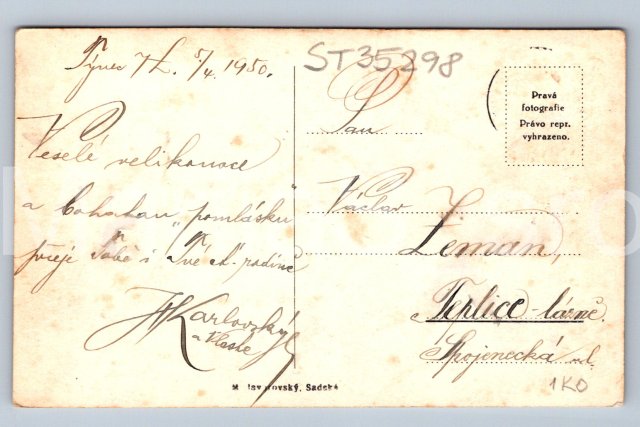 Týnec n/L. 5/4. 1950.
ST35298
Veselé velikonoce
a bohatou "pomlásku"
přeje Tobě i Tvé ct. rodině
Karlovský
a Vlasta
Pan
Václav
Zeman,
Teplice-lázně.
Spojenecká ul.
1KO
Pravá
fotografie
Právo repr.
vyhrazeno.
Sadská